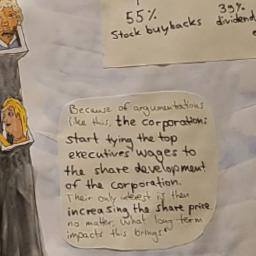 55%
39%
Stock buybacks
dividend
Because of argumentations
like this, the corporations
start tying the top
executives wages to
the share development
of the corporation.
Their only interest is then
increasing the share price
no matter, what long term
impacts this brings.